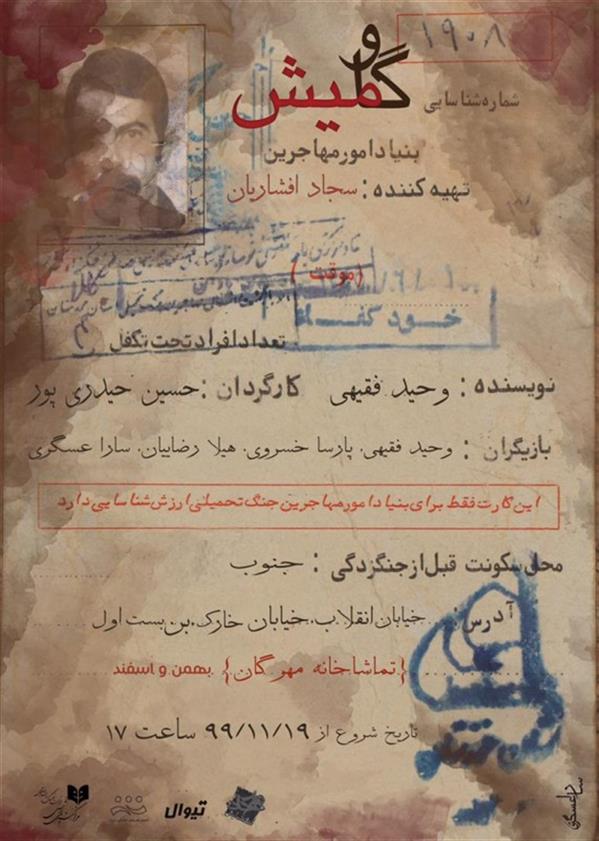 ۱۹۰۸
گاومیش
شماره شناسایی
بنیاد امور مهاجرین
تهیه کننده : سجاد افشاریان
(موقت)
خود کفا
تعداد افراد تحت تکفل
نویسنده : وحید فقیهی کارگردان : حسین حیدری پور
بازیگران : وحید فقیهی، پارسا خسروی، هیلا رضاییان، سارا عسگری
این کارت فقط برای بنیاد امور مهاجرین جنگ تحمیلی ارزش شناسایی دارد
محل سکونت قبل از جنگزدگی : جنوب
آدرس : خیابان انقلاب، خیابان خارک، بن بست اول
{تماشاخانه مهرگان} بهمن و اسفند
تاریخ شروع از ۹۹/۱۱/۱۹ ساعت ۱۷
تیوال